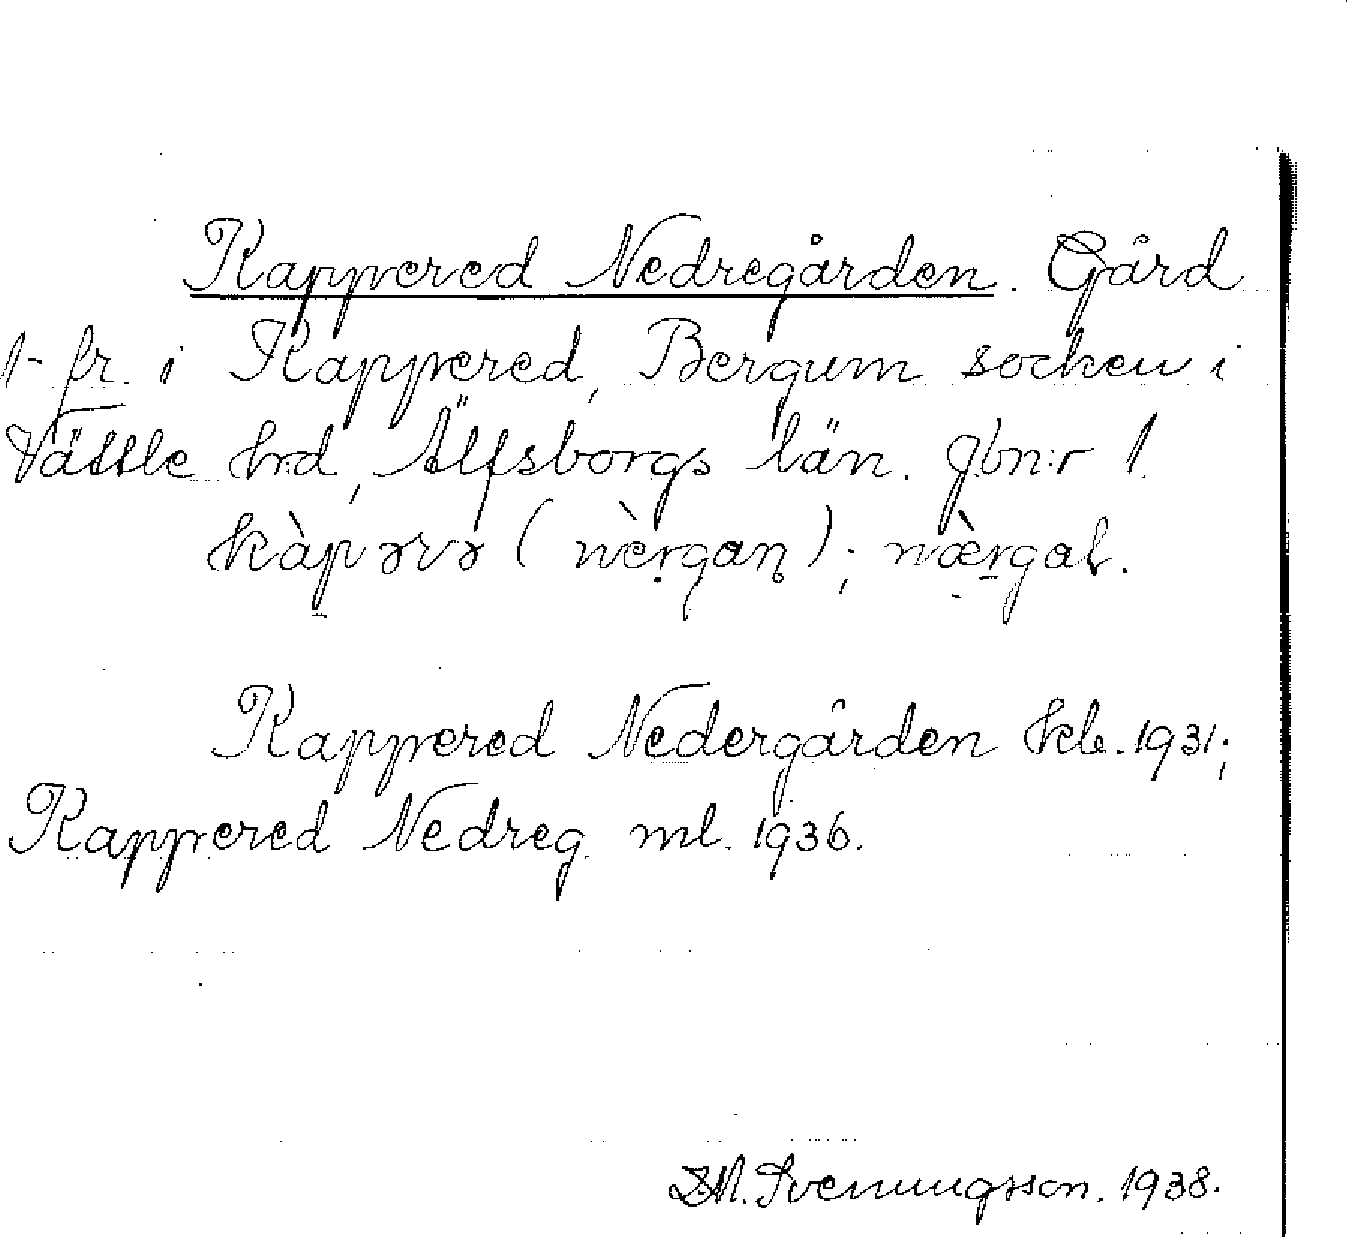 Kappered Nedregården. Gård
1- fr. i Kappered, Bergum socken i
Vättle hrd, Älfsborgs län. Jbn:r 1.
kàpərə (nèrgaɳ); næ̀rgal.
Kappered Nedergården kb. 1931;
Kappered Nedreg. ml. 1936.
Svenungsson. 1938.